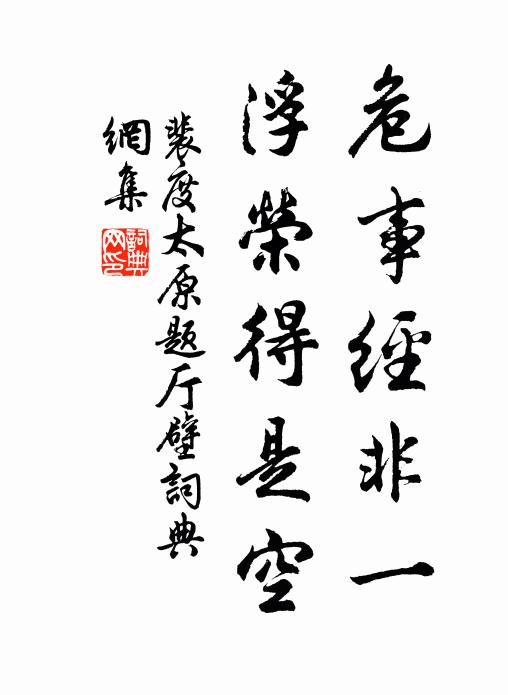 危事經非一
浮榮得是空
裴度太原题厅壁詞典
網集
詞典網印